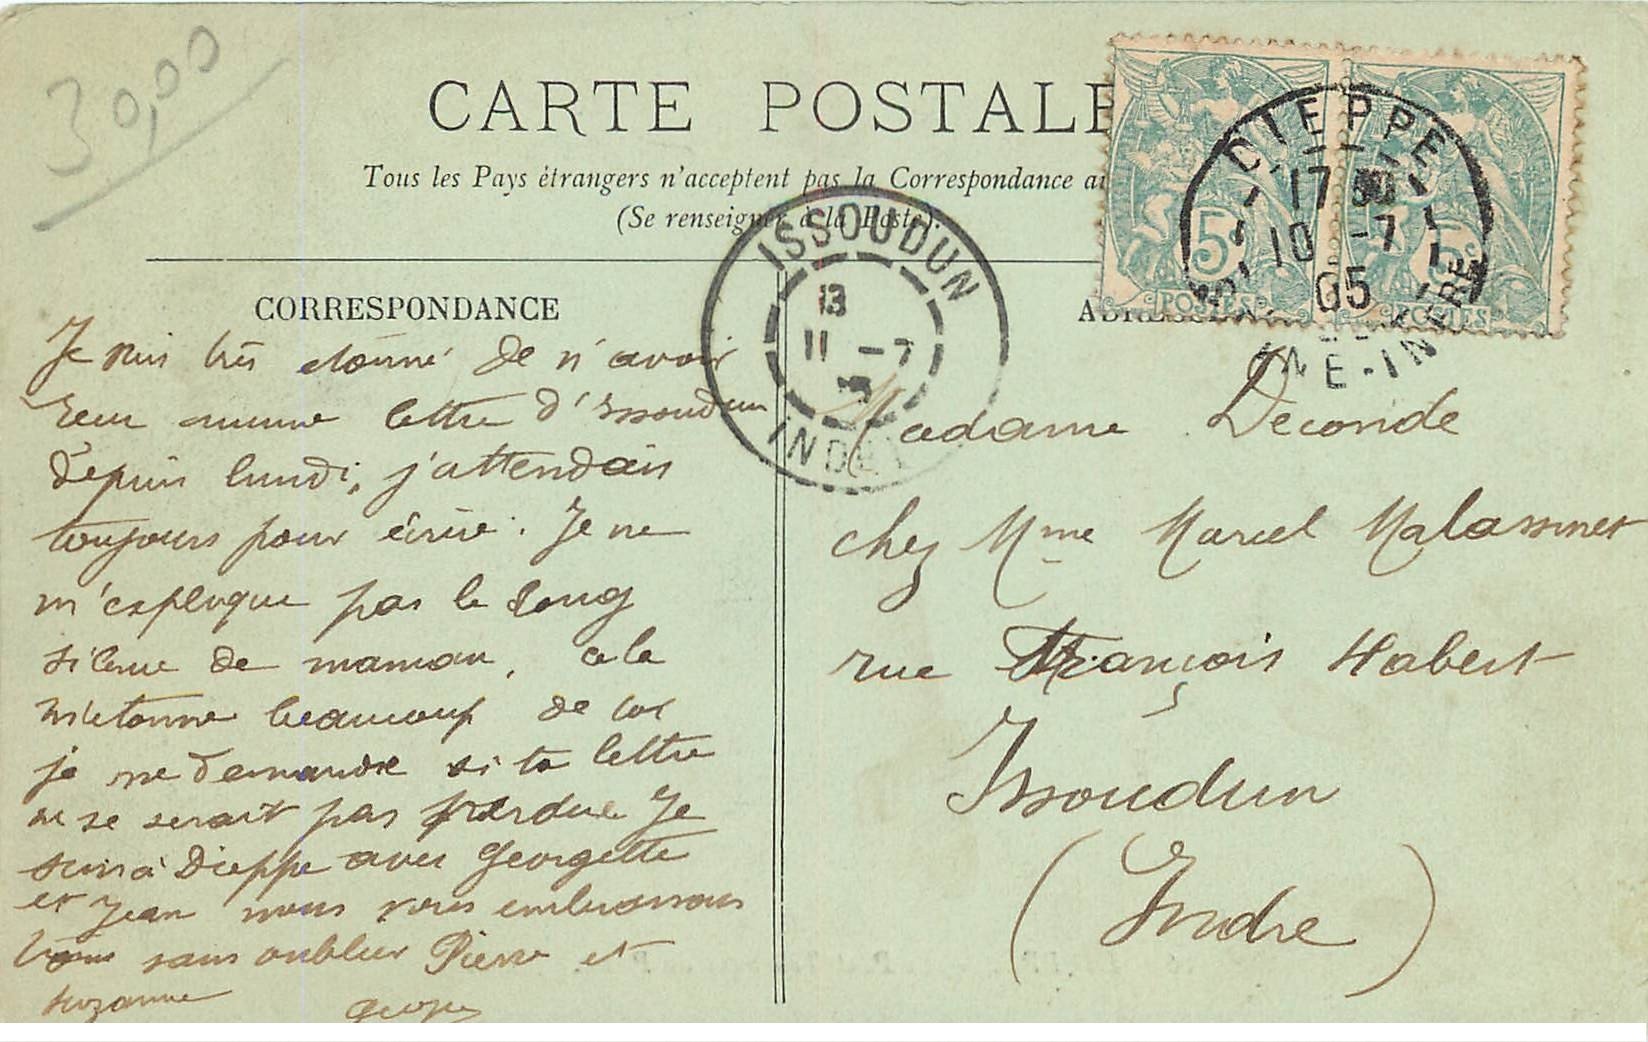 30,00
CARTE POSTALE
Tous les Pays étrangers n'acceptent pas la Correspondance au
(Se renseigner à la Poste).
DIEPPE
17 30
10 -7
05
E-INFRE
5
POSTES
5
POSTES
ISSOUDUN
13
11 -7
INDRE
CORRESPONDANCE
Je suis très étonné de n'avoir
reçu aucune lettre d'Issoudun
depuis lundi, j'attendais
toujours pour écrire. Je ne
m'explique pas le long
silence de maman, cela
m'étonne beaucoup de toi
je me demande si ta lettre
ne se serait pas perdue. Je
suis à Dieppe avec Georgette
et Jean nous vous embrassons
tous sans oublier Pierre et
Suzanne
Georges
ADRESSE
Madame Deconde
chez Mme Marcel Malassinet
rue François Habert
Issoudun
(Indre)